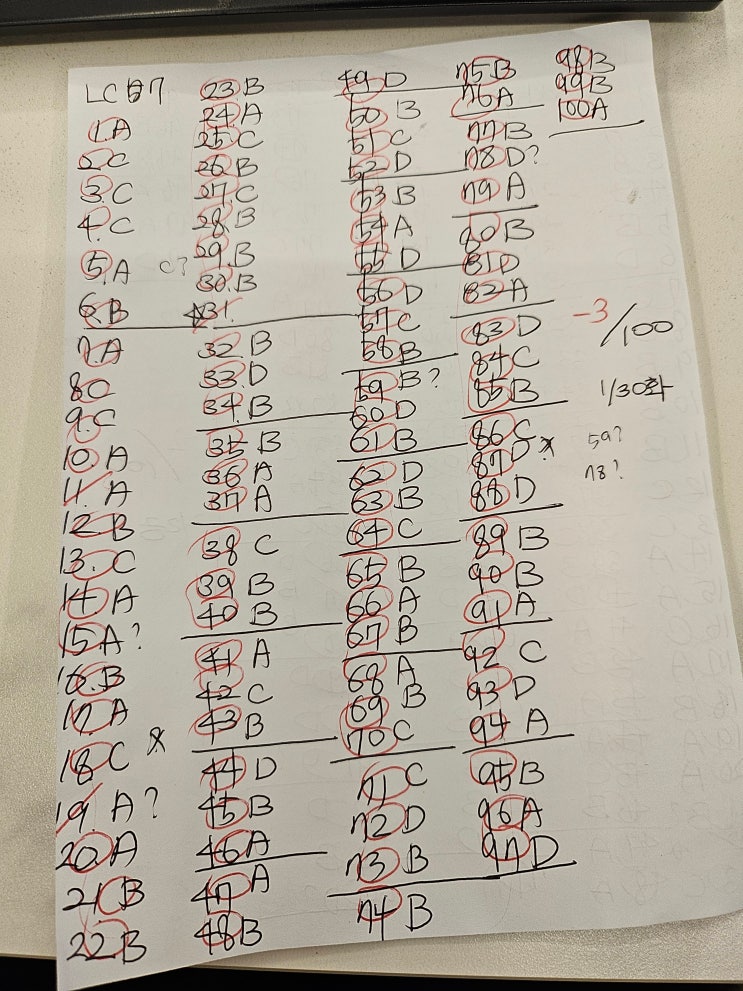 LC #7
1.A
2.C
3.C
4.C
5.A C?
6.B
7.A
8C
9.C
10.A
11.A
12B
13.C
14A
15A?
16.B
17.A
18C
19 A?
20.A
21B
22B
23B
24A
25C
26B
27.C
28.B
29.B
30.B
31.
32 B
33.D
34.B
35 B
36 A
37 A
38 C
39 B
40 B
41 A
42 C
43 B
44 D
45 B
46 A
47 A
48 B
49 D
50 B
51 C
52 D
53 B
54 A
55 D
56 D
57 C
58 B
59 B?
60 D
61 B
62 D
63 B
64 C
65 B
66 A
67 B
68 A
69 B
70 C
71 C
72 D
73 B
74 B
75 B
76 A
77 B
78 D?
79 A
80 B
81 D
82 A
83 D
84 C
85 B
86 C
87 D
88 D
89 B
90 B
91 A
92 C
93 D
94 A
95 B
96 A
97 D
98 B
99 B
100A
-3/100
1/30화
59?
78?